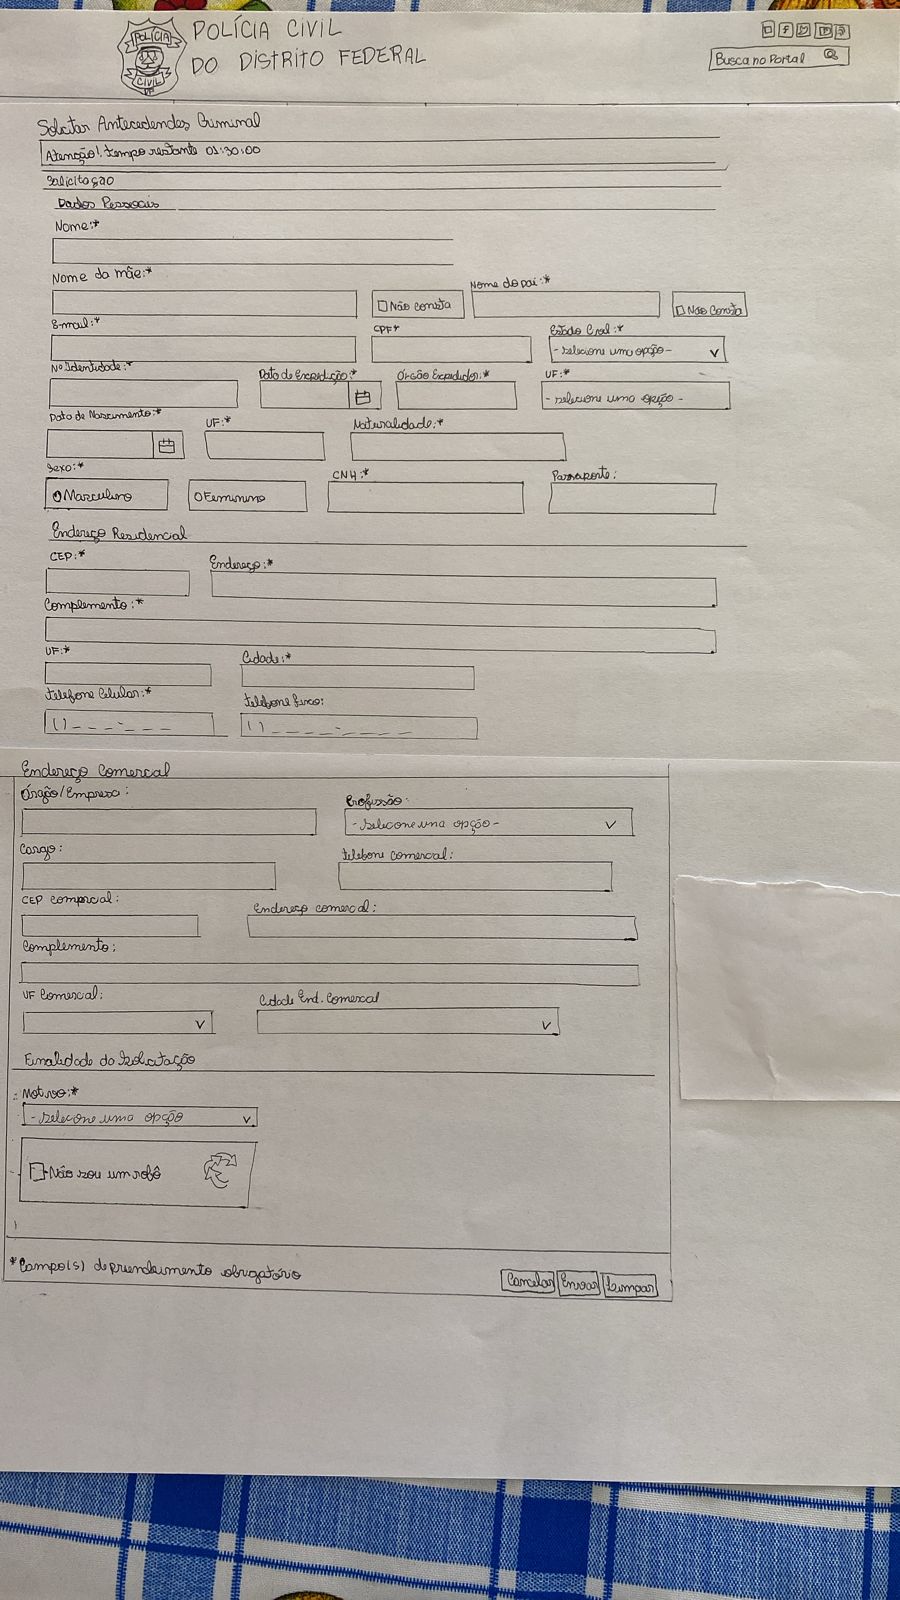 POLÍCIA CIVIL
DO DISTRITO FEDERAL
POLÍCIA
CIVIL
DF
Busca no Portal
Solicitar Antecedendes Criminal
Atenção! tempo restante 01:30:00
Solicitação
Dados Pessoais
Nome:*
Nome da mãe:*
Nome do pai:*
Não consta
Não Consta
E-mail:*
CPF*
Estado Civil:*
-selecione uma opção-
Nº Identidade:*
Data de Expedição:*
Órgão Expedidor:*
UF:*
-selecione uma opção-
Data de Nascimento:*
UF:*
Naturalidade:*
Sexo:*
CNH:*
Passaporte:
Masculino
Feminino
Endereço Residencial
CEP:*
Endereço:*
Complemento:*
UF:*
Cidade:*
telefone Celular:*
telefone fixo:
( ) _ _ _ - _ _ _ _
( ) _ _ _ - _ _ _ _
Endereço Comercal
Órgão/Empresa:
Profissão:
-Selecione uma opção-
Cargo:
telefone comercial:
CEP comercial:
Endereço comercial:
Complemento:
UF Comercial:
Cidade End. Comercial
Finalidade da Solicitação
Motivo:*
-selecione uma opção
Não sou um robô
*Campo(s) de preenchimento obrigatório
Cancelar Enviar Limpar